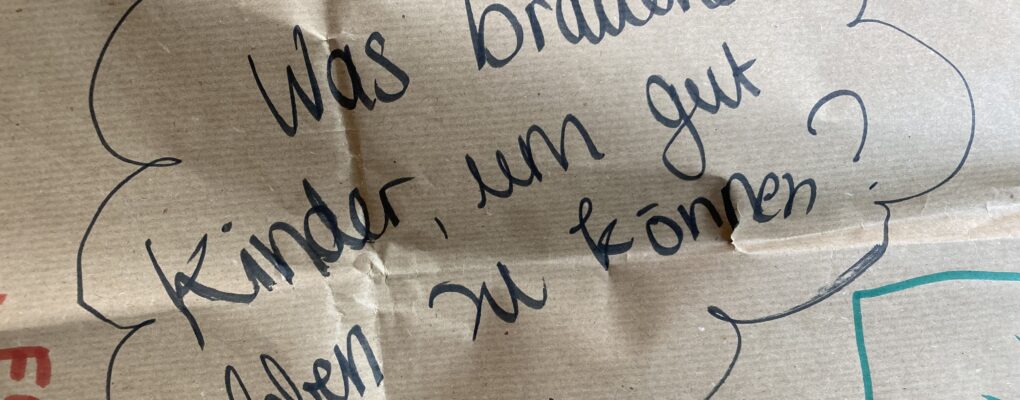 Was brauchen
Kinder, um gut
leben zu können?